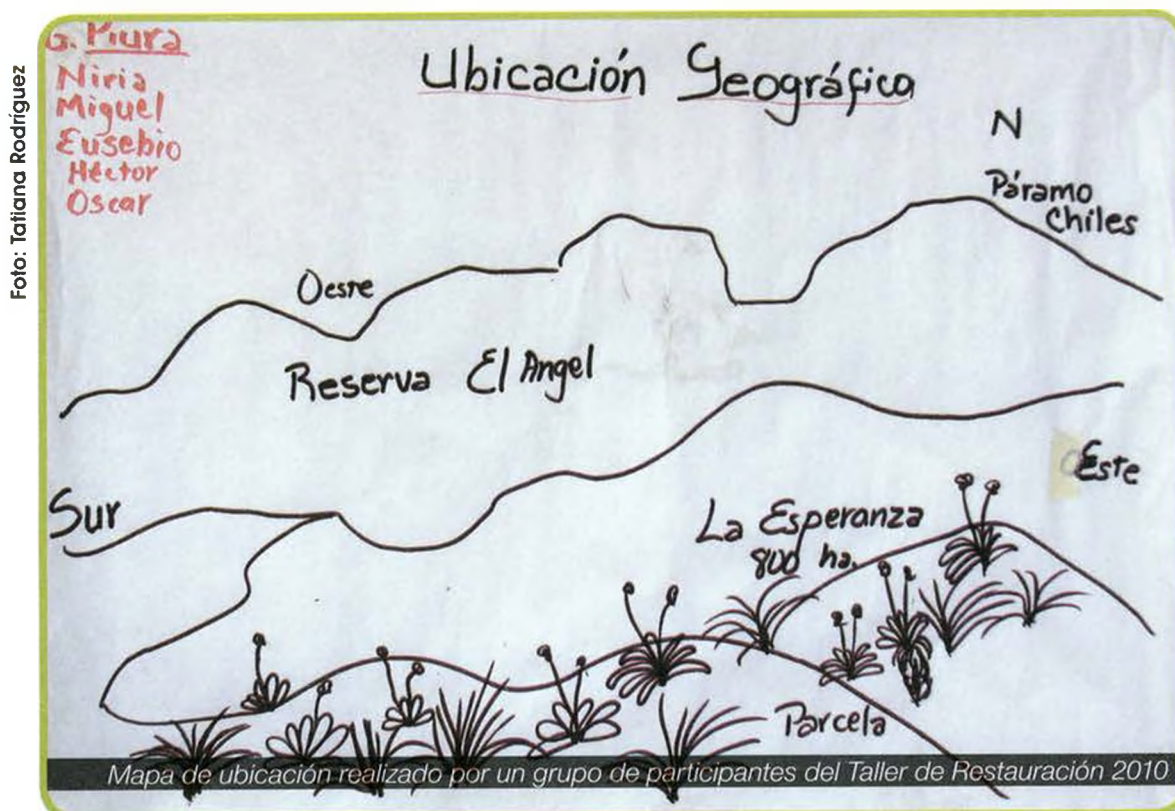 Foto: Tatiana Rodríguez
G. Piura
Niria
Miguel
Eusebio
Héctor
Oscar
Ubicación Geográfica
N
Páramo
Chiles
Oeste
Reserva El Angel
Este
Sur
La Esperanza
800 ha.
Parcela
Mapa de ubicación realizado por un grupo de participantes del Taller de Restauración 2010